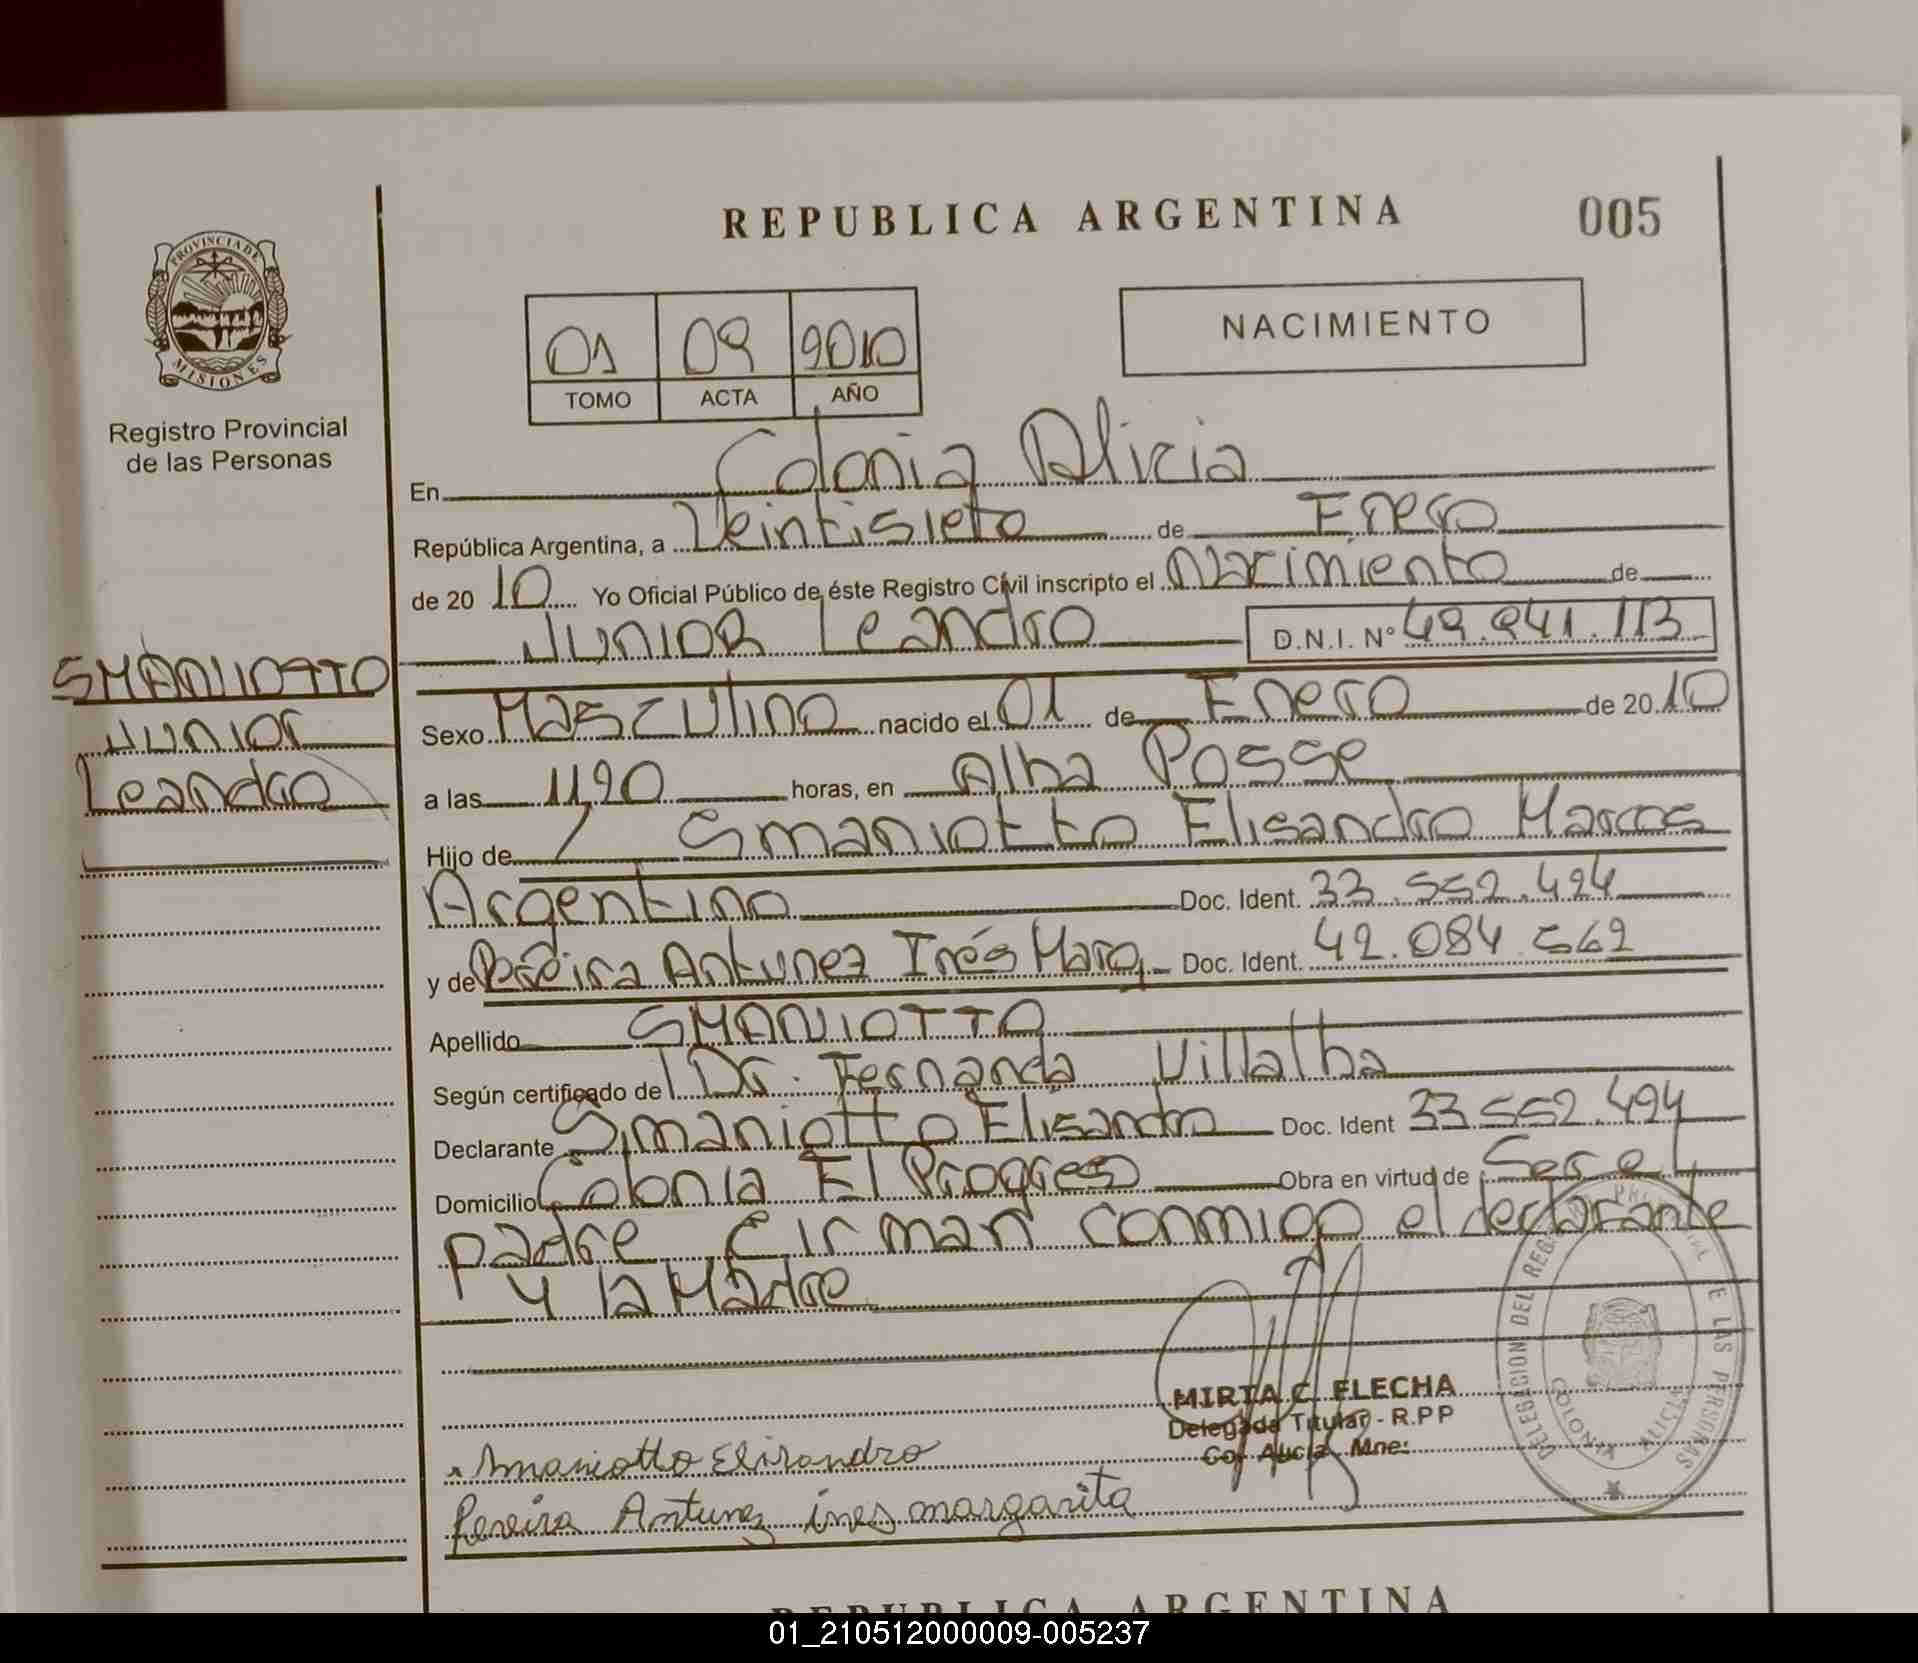 REPUBLICA ARGENTINA
005
PROVINCIA DE
MISIONES
Registro Provincial
de las Personas
01 09 2010
TOMO ACTA AÑO
NACIMIENTO
En Colonia Alicia
República Argentina, a Veintisiete de Enero
de 20 10 Yo Oficial Público de éste Registro Civil inscripto el Nacimiento de
JUNIOR Leandro D.N.I. Nº 49.841.113
SMANIOTTO
JUNIOR
Leandro
Sexo Masculino nacido el 01 de Enero de 20 10
a las 11,20 horas, en Alba Posse
Hijo de Smaniotto Elisandro Marcos
Argentino Doc. Ident. 33.552.424
y de Pereira Antunez Inés Marg, Doc. Ident. 42.084.562
Apellido SMANIOTTO
Según certificado de Dr. Fernanda Villalba
Declarante Smaniotto Elisandro Doc. Ident 33.552.424
Domicilio Colonia El Progreso Obra en virtud de Ser el
padre Firman conmigo el declarante
y la Madre
MIRTA C. FLECHA
Delegada Titular - R.P.P
Col Alicia - Mnes
DELEGACION DEL REGISTRO PROVINCIAL DE LAS PERSONAS
COLONIA ALICIA
Smaniotto Elisandro
Pereira Antunez ines margarita
REPUBLICA ARGENTINA
01_210512000009-005237